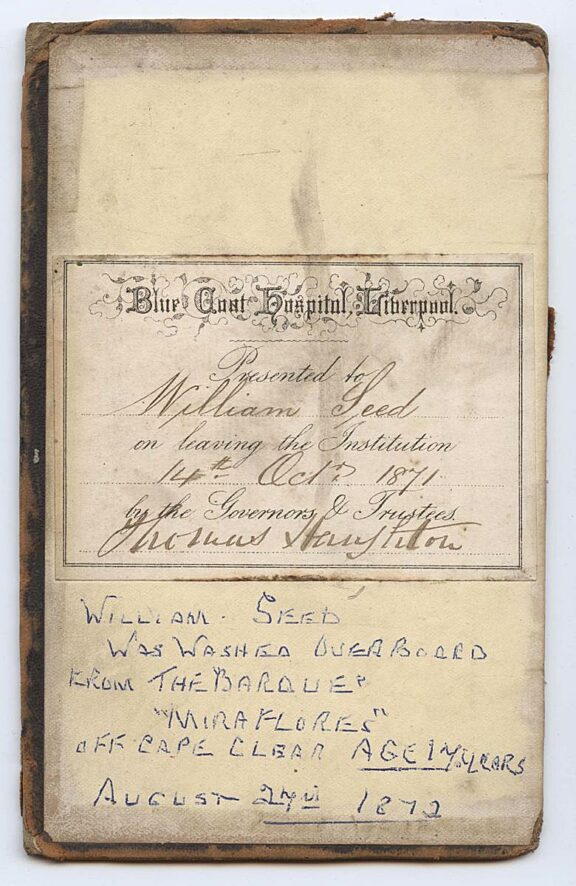 Blue Coat Hospital, Liverpool.
Presented to
William Seed
on leaving the Institution
14th Octr 1871
by the Governors & Trustees.
Thomas Haughton
WILLIAM. SEED
WAS WASHED OVERBOARD
FROM THE BARQUE
"MIRAFLORES"
OFF CAPE CLEAR AGE 17 YEARS
AUGUST 1872